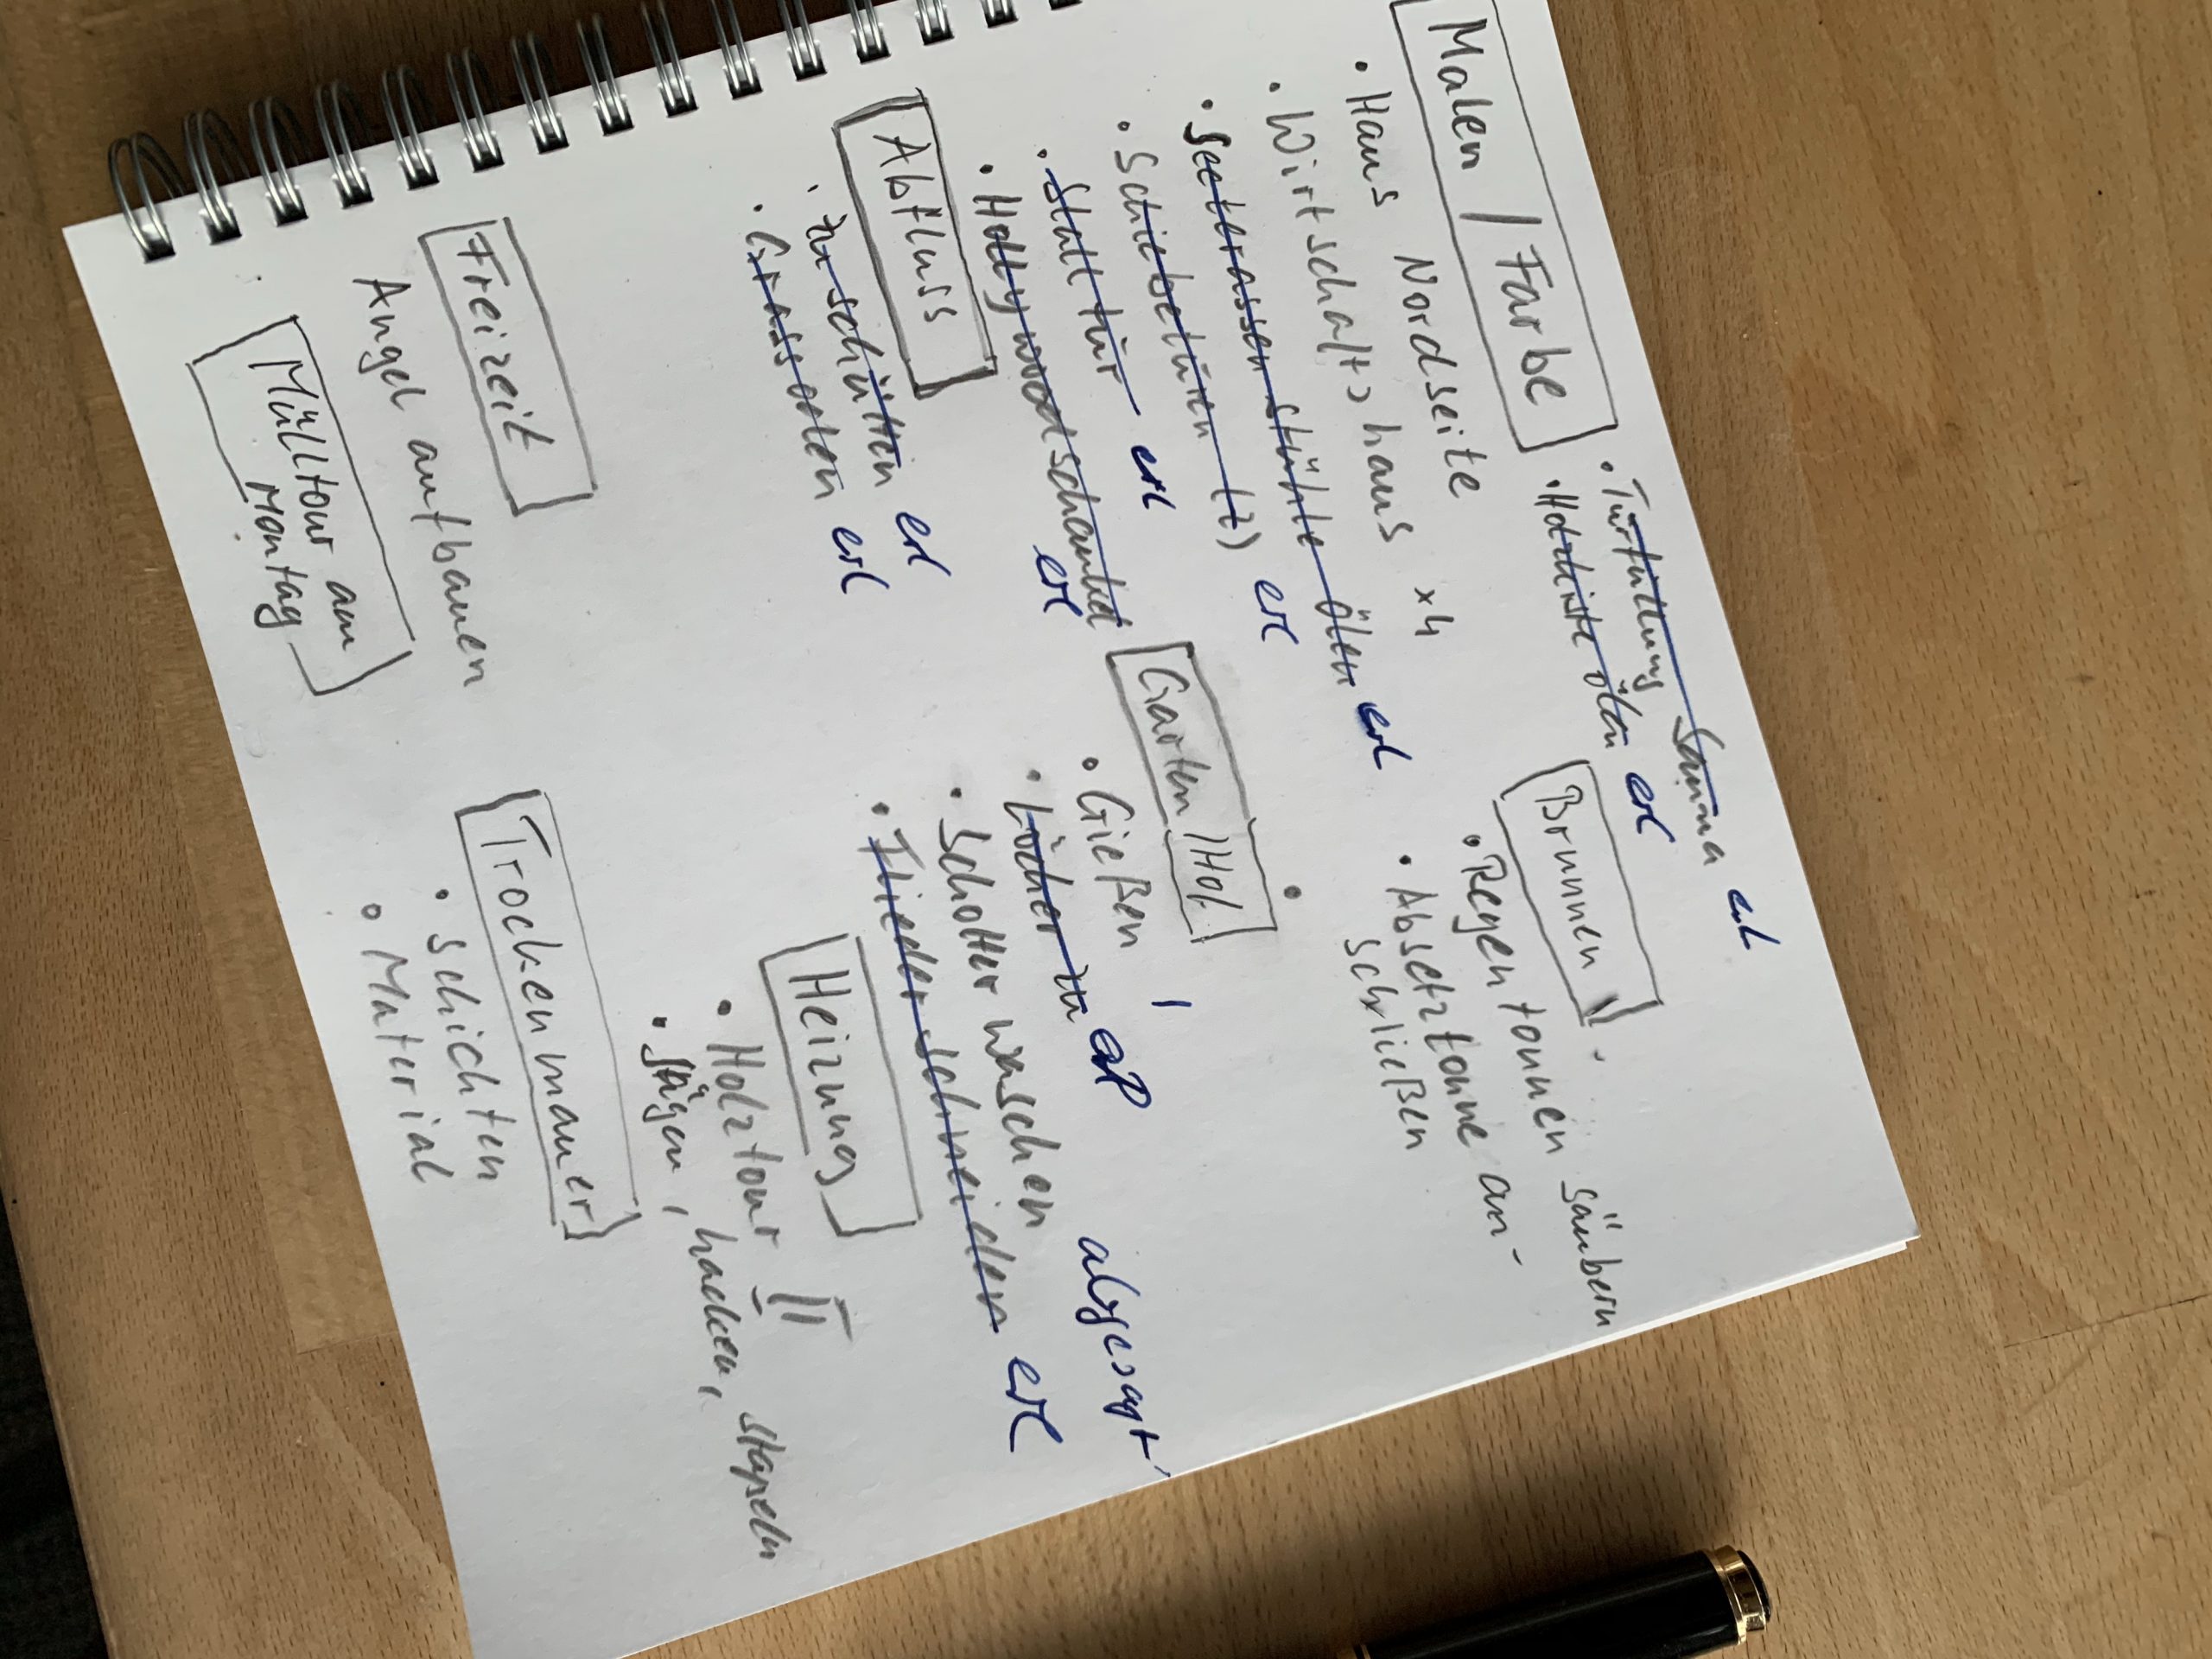 Malen / Farbe
• Haus Nordseite
• Wirtschaftshaus x4
• Seeterassenstühle ölen erl
• Schiebetüren (2) erl
• Stalltür erl
• Hollywoodschaukel erl
• Türfüllung Sauna erl
• Holzkiste ölen erl
Brunnen
• Regentonnen säubern
• Absetztonne an-
schließen
Abfluss
• zuschütten erl
• Grassoden erl
Garten / Hof
• Gießen
• Löcher zu
• Schotter waschen
abgesagt
• Flieder schneiden erl
Heizung
• Holztour II
• sägen, hacken, stapeln
Freizeit
Angel aufbauen
Mülltour am
Montag
Trockenmauer
• schichten
• Material